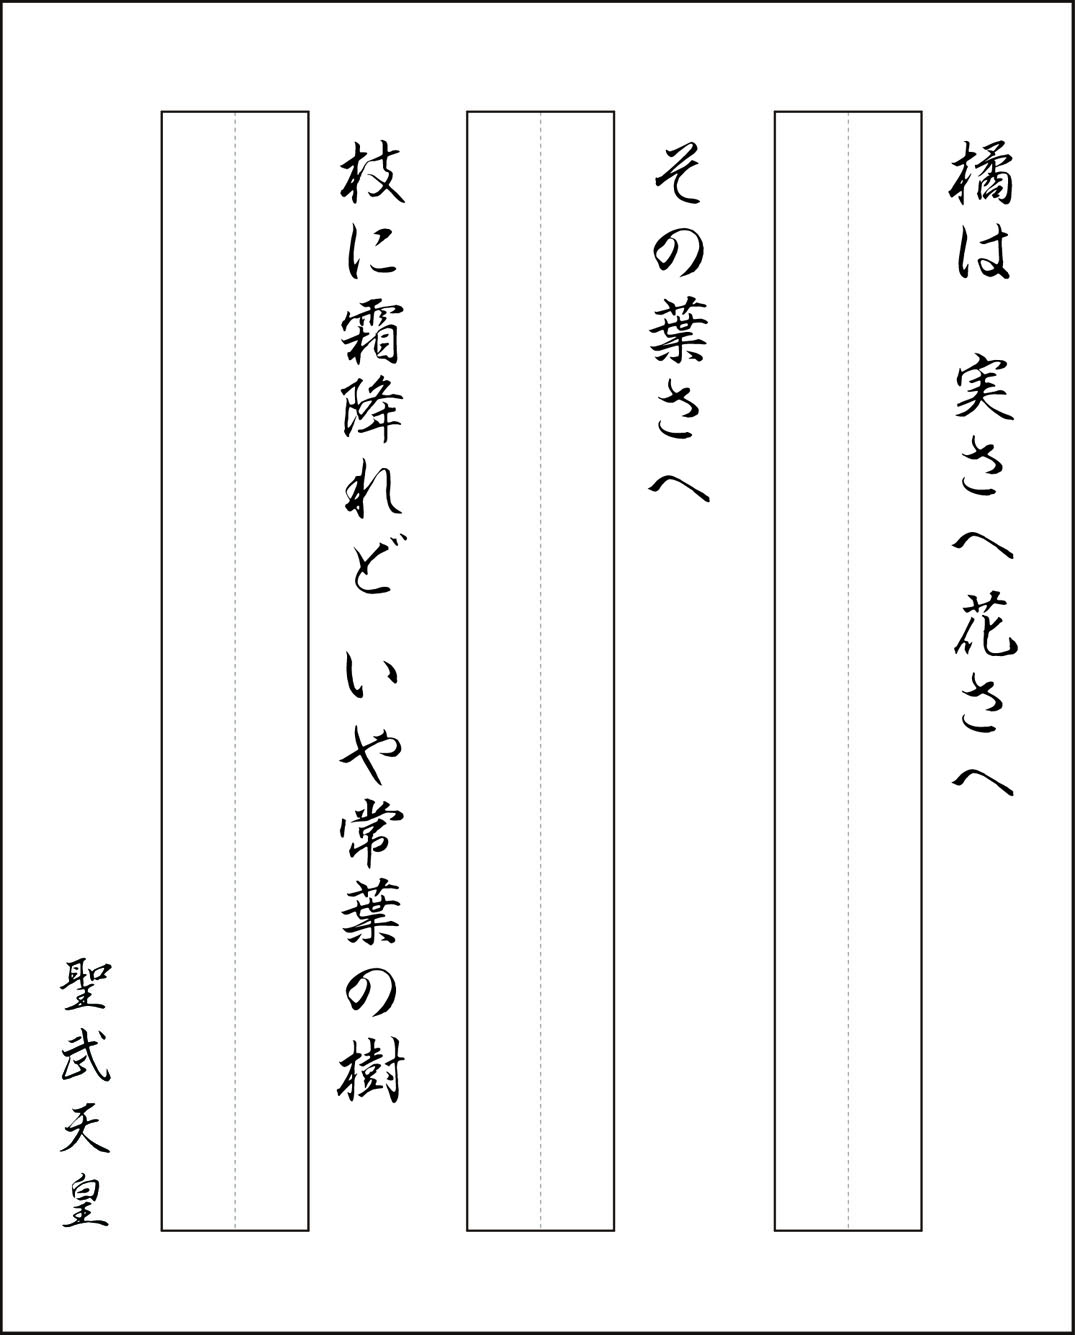 橘は　実さへ花さへ
その葉さへ
枝に霜降れど　いや常葉の樹
聖武天皇